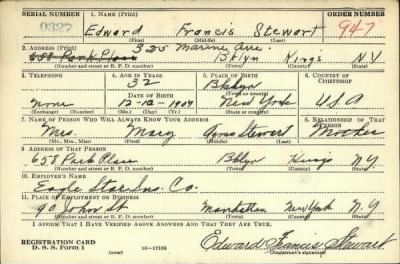 SERIAL NUMBER 1. NAME (Print) ORDER NUMBER
0327 Edward Francis Stewart 947
(First) (Middle) (Last)
2. ADDRESS (Print) 325 Marine Ave.
658 Park Place Bklyn Kings N.Y.
(Number and street or R. F. D. number) (Town) (County) (State)
3. TELEPHONE 4. AGE IN YEARS 5. PLACE OF BIRTH 6. COUNTRY OF CITIZENSHIP
32 Bklyn
DATE OF BIRTH (Town or county)
None 12-12-1907 New York U.S.A
(Exchange) (Number) (Mo.) (Day) (Yr.) (State or country)
7. NAME OF PERSON WHO WILL ALWAYS KNOW YOUR ADDRESS 8. RELATIONSHIP OF THAT PERSON
Mrs. Mary Stewart Mother
(Mr., Mrs., Miss) (First) (Middle) (Last)
9 ADDRESS OF THAT PERSON
658 Park Place Bklyn Kings N.Y.
(Number and street or R. F. D. number) (Town) (County) (State)
10. EMPLOYER'S NAME
Eagle Star Ins. Co.
11. PLACE OF EMPLOYMENT OR BUSINESS
90 John St Manhattan New York N.Y.
(Number and street or R. F. D. number) (Town) (County) (State)
I AFFIRM THAT I HAVE VERIFIED ABOVE ANSWERS AND THAT THEY ARE TRUE.
REGISTRATION CARD Edward Francis Stewart
D. S. S. Form 1 16-17105 (Registrant's signature)